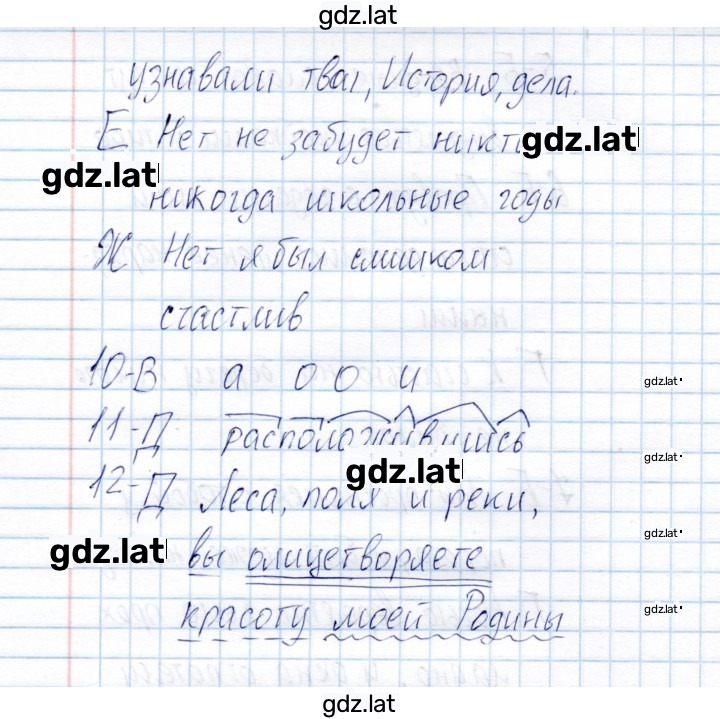 gdz.lat
узнавали тваг, История, дела.
Е Нет не забудет никт
gdz.lat
gdz.lat
никогда школьные годы
Ж Нет я был слишком
счастлив
10-В а о о и
gdz.lat
11-Д расположившись
gdz.lat
gdz.lat
12-Д Леса, поля и реки,
gdz.lat
gdz.lat
вы олицетворяете
красоту моей Родины
gdz.lat
gdz.lat